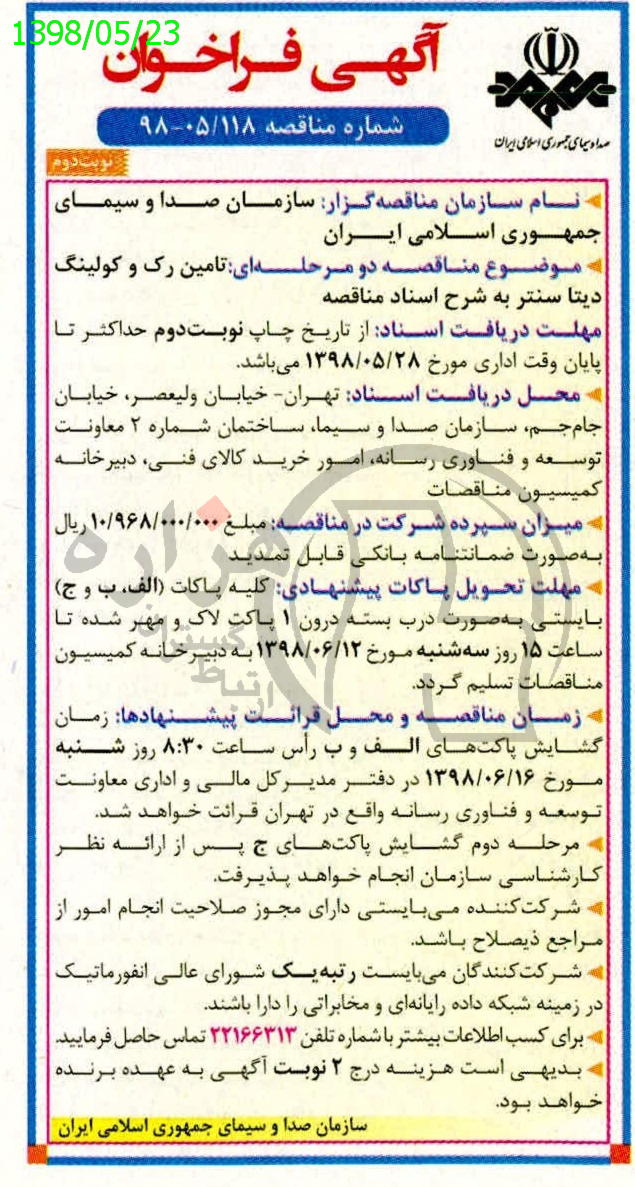 1398/05/23
آگهی فراخوان
صدا و سیمای جمهوری اسلامی ایران
شماره مناقصه ۹۸-۰۵/۱۱۸
نوبت دوم
نام سازمان مناقصه‌گزار: سازمان صدا و سیمای
جمهوری اسلامی ایران
موضوع مناقصه دو مرحله‌ای: تامین رک و کولینگ
دیتا سنتر به شرح اسناد مناقصه
مهلت دریافت اسناد: از تاریخ چاپ نوبت‌دوم حداکثر تا
پایان وقت اداری مورخ ۱۳۹۸/۰۵/۲۸ می‌باشد.
محل دریافت اسناد: تهران- خیابان ولیعصر، خیابان
جام‌جم، سازمان صدا و سیما، ساختمان شماره ۲ معاونت
توسعه و فناوری رسانه، امور خرید کالای فنی، دبیرخانه
کمیسیون مناقصات
میزان سپرده شرکت در مناقصه: مبلغ ۱۰/۹۶۸/۰۰۰/۰۰۰ ریال
به‌صورت ضمانتنامه بانکی قابل تمدید
مهلت تحویل پاکات پیشنهادی: کلیه پاکات (الف، ب و ج)
بایستی به‌صورت درب بسته درون ۱ پاکت لاک و مهر شده تا
ساعت ۱۵ روز سه‌شنبه مورخ ۱۳۹۸/۰۶/۱۲ به دبیرخانه کمیسیون
مناقصات تسلیم گردد.
زمان مناقصه و محل قرائت پیشنهادها: زمان
گشایش پاکت‌های الف و ب رأس ساعت ۸:۳۰ روز شنبه
مورخ ۱۳۹۸/۰۶/۱۶ در دفتر مدیرکل مالی و اداری معاونت
توسعه و فناوری رسانه واقع در تهران قرائت خواهد شد.
مرحله دوم گشایش پاکت‌های ج پس از ارائه نظر
کارشناسی سازمان انجام خواهد پذیرفت.
شرکت‌کننده می‌بایستی دارای مجوز صلاحیت انجام امور از
مراجع ذیصلاح باشد.
شرکت‌کنندگان می‌بایست رتبه‌یک شورای عالی انفورماتیک
در زمینه شبکه داده رایانه‌ای و مخابراتی را دارا باشند.
برای کسب اطلاعات بیشتر با شماره تلفن ۲۲۱۶۶۳۱۳ تماس حاصل فرمایید.
بدیهی است هزینه درج ۲ نوبت آگهی به عهده برنده
خواهد بود.
سازمان صدا و سیمای جمهوری اسلامی ایران
هزاره
ارتباط گستران